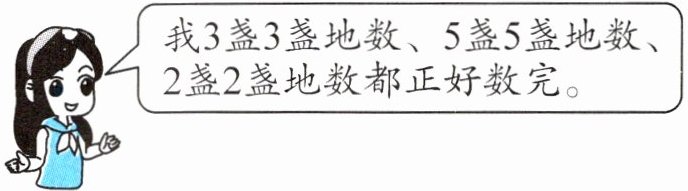 我3盏3盏地数、5盏5盏地数、
2盏2盏地数都正好数完。